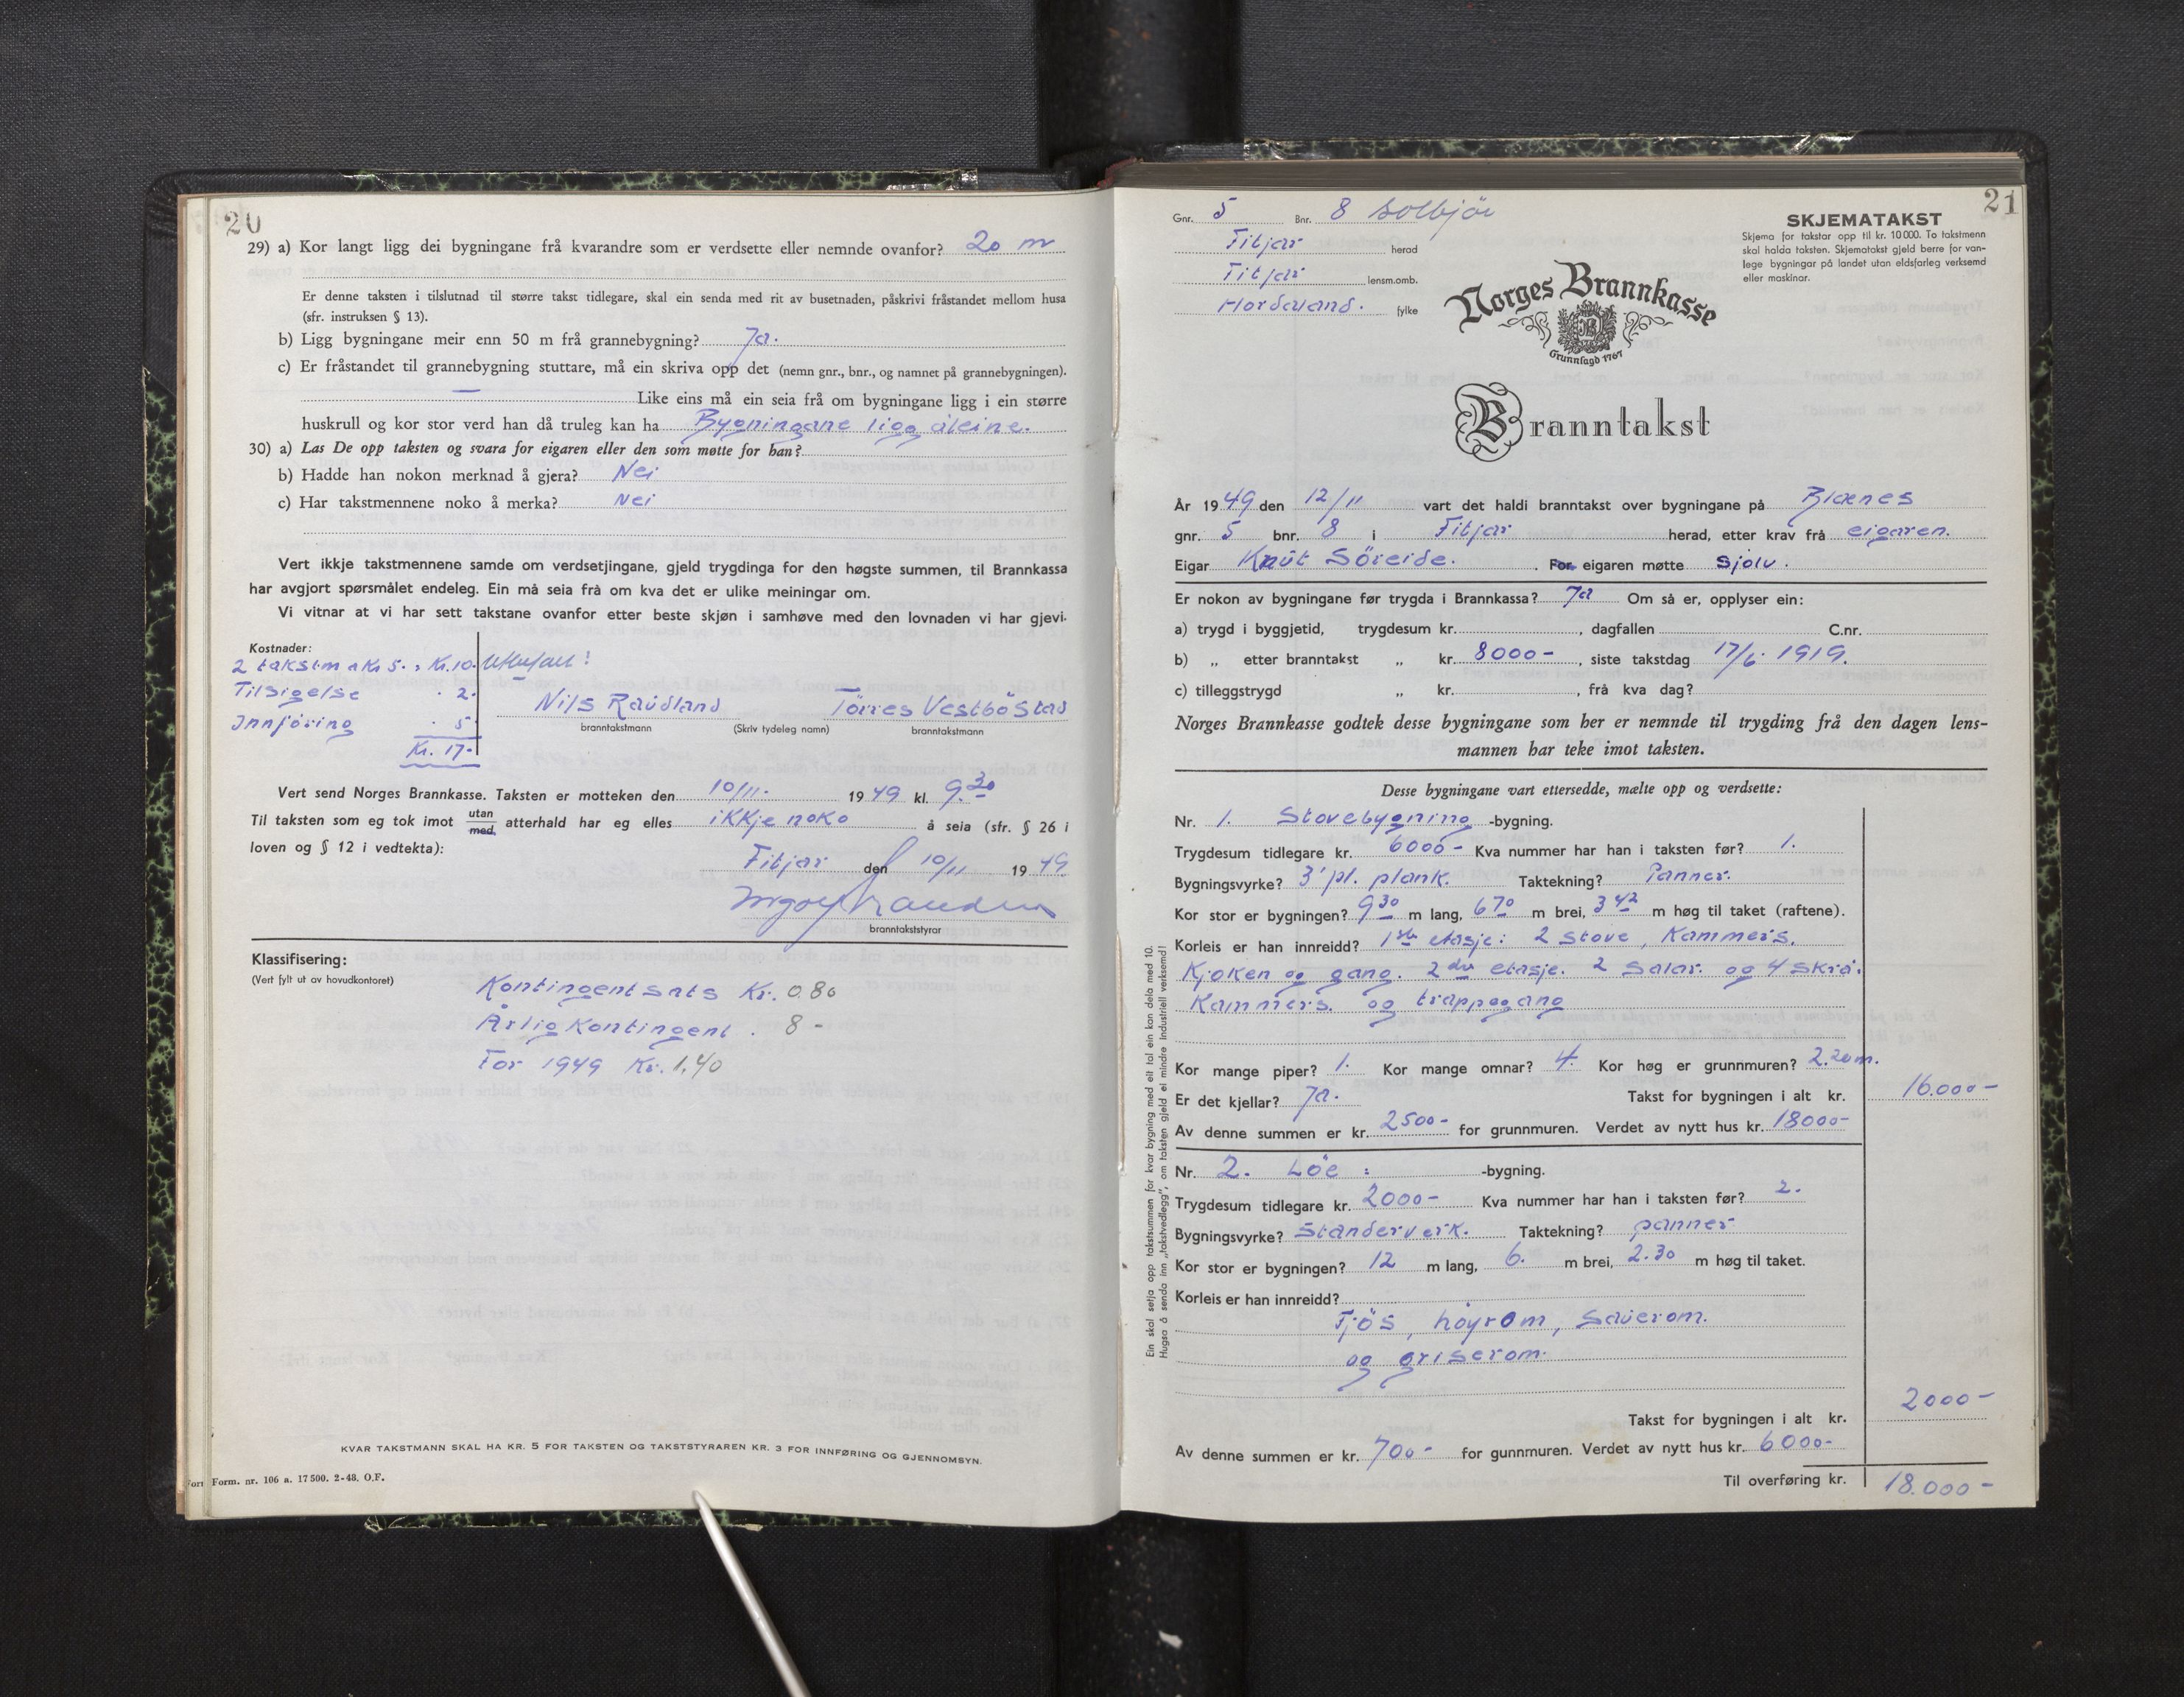 20
29) a) Kor langt ligg dei bygningane frå kvarandre som er verdsette eller nemnde ovanfor? 20 m
Er denne taksten i tilslutnad til større takst tidlegare, skal ein senda med rit av busetnaden, påskrivi fråstandet mellom husa
(sfr. instruksen § 13).
b) Ligg bygningane meir enn 50 m frå grannebygning? Ja.
c) Er fråstandet til grannebygning stuttare, må ein skriva opp det (nemn gnr., bnr., og namnet på grannebygningen).
— Like eins må ein seia frå om bygningane ligg i ein større
huskrull og kor stor verd han då truleg kan ha Bygningane ligg åleine.
30) a) Las De opp taksten og svara for eigaren eller den som møtte for han?
b) Hadde han nokon merknad å gjera? Nei
c) Har takstmennene noko å merka? Nei
Vert ikkje takstmennene samde om verdsetjingane, gjeld trygdinga for den høgste summen, til Brannkassa
har avgjort spørsmålet endeleg. Ein må seia frå om kva det er ulike meiningar om.
Vi vitnar at vi har sett takstane ovanfor etter beste skjøn i samhøve med den lovnaden vi har gjevi.
Kostnader:
2 takstm a Kr 5. : Kr. 10.
Tilsigelse . 2.
Innføring . 5
Kr. 17.
Nils Raudland Törres Vestböstad
branntakstmann (Skriv tydeleg namn) branntakstmann
Vert send Norges Brannkasse. Taksten er motteken den 10/11. 1949 kl. 9.30
Til taksten som eg tok imot utan/med atterhald har eg elles ikkje noko å seia (sfr. § 26 i
loven og § 12 i vedtekta):
Fitjar den 10/11 1949.
branntakststyrar
Klassifisering:
(Vert fylt ut av hovudkontoret)
Kontingentsats Kr. 0.80
Årlig Kontingent . 8 -
For 1949 Kr. 1.40
KVAR TAKSTMANN SKAL HA KR. 5 FOR TAKSTEN OG TAKSTSTYRAREN KR. 3 FOR INNFØRING OG GJENNOMSYN.
Form. nr. 106 a. 17500. 2-48. O.F.
21
Gnr. 5 Bnr. 8 Solbjör
Fitjar herad
Fitjar lensm.omb.
Hordaland. fylke
SKJEMATAKST
Skjema for takstar opp til kr. 10000. To takstmenn
skal halda taksten. Skjematakst gjeld berre for van-
lege bygningar på landet utan eldsfarleg verksemd
eller maskinar.
Norges Brannkasse
Grunnlagd 1767
Branntakst
År 1949 den 12/11 vart det haldi branntakst over bygningane på Blænes
gnr. 5 bnr. 8 i Fitjar herad, etter krav frå eigaren.
Eigar Knut Söreide. For eigaren møtte sjolv.
Er nokon av bygningane før trygda i Brannkassa? Ja Om så er, opplyser ein:
a) trygd i byggjetid, trygdesum kr. , dagfallen C.nr.
b) „ etter branntakst „ kr. 8000- , siste takstdag 17/6. 1919.
c) tilleggstrygd „ kr. , frå kva dag?
Norges Brannkasse godtek desse bygningane som her er nemnde til trygding frå den dagen lens-
mannen har teke imot taksten.
Desse bygningane vart ettersedde, mælte opp og verdsette:
Nr. 1. Stovebygning -bygning.
Trygdesum tidlegare kr. 6000- Kva nummer har han i taksten før? 1.
Bygningsvyrke? 3" pl. plank. Taktekning? Panner.
Kor stor er bygningen? 9.30 m lang, 6.70 m brei, 3.42 m høg til taket (raftene).
Korleis er han innreidd? 1ste etasje: 2 stove, Kammers,
Kjøken og gang. 2dre etasje. 2 Salar. og 4 skrå.
Kammers. og trappegang
Kor mange piper? 1. Kor mange omnar? 4. Kor høg er grunnmuren? 2.20 m.
Er det kjellar? Ja. Takst for bygningen i alt kr. 16.000-
Av denne summen er kr. 2500- for grunnmuren. Verdet av nytt hus kr. 18000-
Nr. 2. Löe : -bygning.
Trygdesum tidlegare kr. 2000- Kva nummer har han i taksten før? 2.
Bygningsvyrke? Standerverk. Taktekning? panner
Kor stor er bygningen? 12 m lang, 6. m brei, 2.30 m høg til taket.
Korleis er han innreidd?
Fjös, høyrom, Sauerom.
og griserom.
Takst for bygningen i alt kr. 2000-
Av denne summen er kr. 700- for gunnmuren. Verdet av nytt hus kr. 6000-
Til overføring kr. 18.000-
Ein skal setja opp takstsummen for kvar bygning med eit tal ein kan dela med 10.
Hugsa å senda inn „takstvedlegg", om taksten gjeld ei mindre industriell verksemd!